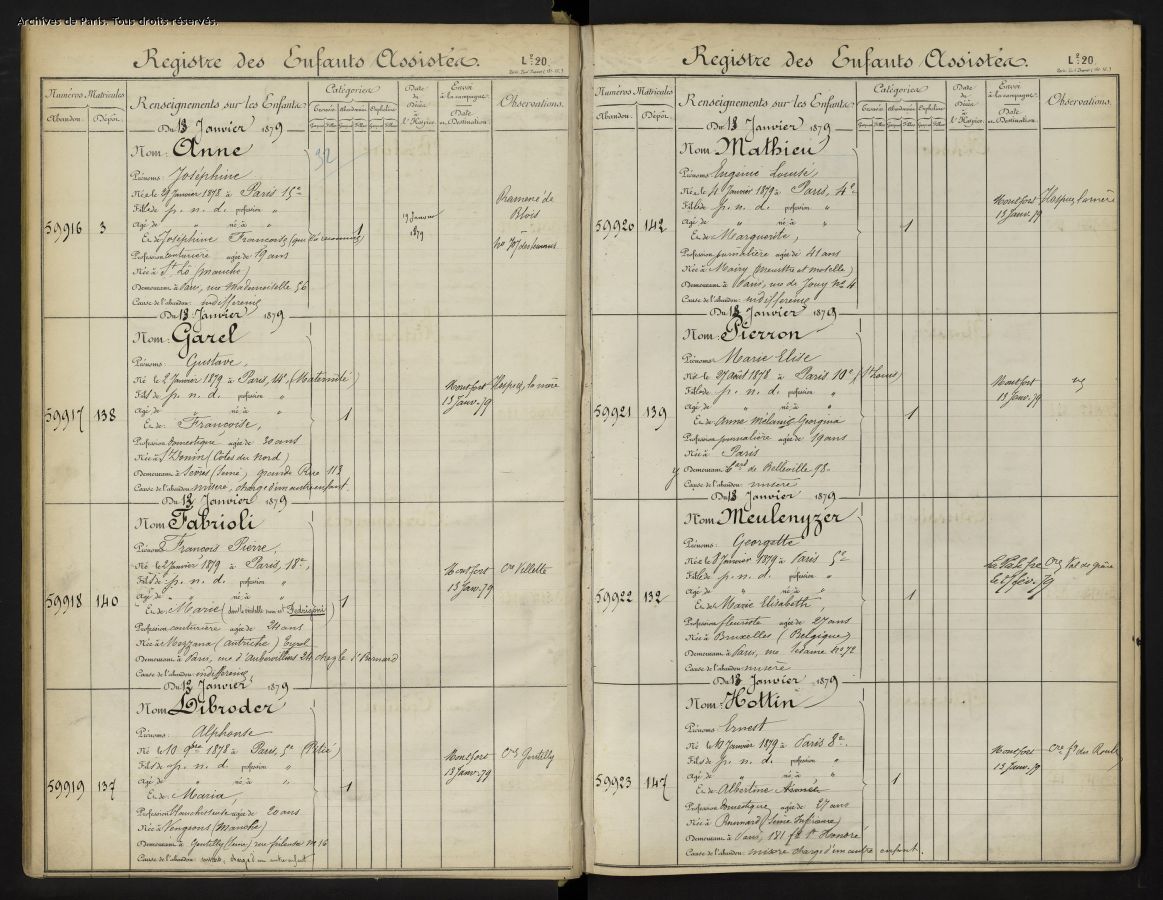 Archives de Paris. Tous droits réservés.
Registre des Enfants Assistés.
L° 20.
Numéros Matricules
Abandon. Dépôt.
Renseignements sur les Enfants
Catégories
Trouvés Abandonnés Orphelins
Garçons Filles Garçons Filles Garçons Filles
Date du Décès à l'Hospice.
Envoi à la campagne. Date et Destination.
Observations.
Du 13 Janvier 1879
59916 3
Nom: Anne
32
Prénoms: Joséphine
Née le 29 Janvier 1878 à Paris 15e
Fille de p. n. d. profession "
Agé de " né à "
Et de Joséphine Françoise, (qui l'a reconnue)
Profession couturière agée de 19 ans
Née à St Lô (manche)
Demeurant à Paris, rue Mademoiselle 56
Cause de l'abandon: indifference
1
19 Janvier 1879
Ramené de Blois
Du 13 Janvier 1879
59917 138
Nom: Garel
Prénoms: Gustave,
Né le 2 Janvier 1879 à Paris, 14e (Maternité)
Fils de p. n. d. profession "
Agé de " né à "
Et de Françoise,
Profession Domestique agée de 30 ans
Née à St Donin (Côtes du Nord)
Demeurant à Sèvres (Seine) grande Rue 113
Cause de l'abandon: misère, charge d'un autre enfant.
1
Montfort 15 Janv. 79
Du 12 Janvier 1879
59918 140
Nom: Fabrioli
Prénoms: François Pierre,
Né le 2 Janvier 1879 à Paris, 18e,
Fils de p. n. d. profession "
Agé de " né à "
Et de Marie (dont le véritable nom est Fedrigoni)
Profession couturière agée de 24 ans
Née à Mezzana (autriche) Tyrol
Demeurant à Paris, rue d'Aubervilliers 24 chez
Cause de l'abandon: indifference
1
Montfort 15 Janv. 79
Cre Villette
Du 12 Janvier 1879
59919 137
Nom: Dibroder
Prénoms: Alphonse
Né le 10 9bre 1878 à Paris, 5e (Pitié)
Fils de p. n. d. profession "
Agé de " né à "
Et de Maria,
Profession blanchisseuse agée de 20 ans
Née à Vengeons (Manche)
Demeurant à Gentilly (Seine) rue No 16
Cause de l'abandon: misère, charge d'un autre enfant
1
Montfort 15 Janv. 79
Cre Gentilly
Registre des Enfants Assistés.
L° 20.
Numéros Matricules
Abandon. Dépôt.
Renseignements sur les Enfants
Catégories
Trouvés Abandonnés Orphelins
Garçons Filles Garçons Filles Garçons Filles
Date du Décès à l'Hospice.
Envoi à la campagne. Date et Destination.
Observations.
Du 13 Janvier 1879
59920 142
Nom: Mathieu
Prénoms: Eugénie Louise,
Née le 4 Janvier 1879 à Paris, 4e
Fille de p. n. d. profession "
Agé de " né à "
Et de Marguerite,
Profession journalière agée de 41 ans
Née à Mairy (meurthe et moselle)
Demeurant à Paris, rue de Jouy No 4
Cause de l'abandon: indifference
1
Montfort 15 Janv. 79
Du 13 Janvier 1879
59921 139
Nom: Pierron
Prénoms: Marie Elise
Née le 27 août 1878 à Paris 10e, (St Louis)
Fille de p. n. d. profession "
Agé de " né à "
Et de Anne Mélanie Georgina
Profession journalière agée de 19 ans
Née à Paris
Demeurant Bard de Belleville 98
Cause de l'abandon: misère
1
Montfort 15 Janv. 79
Du 13 Janvier 1879
59922 132
Nom: Meulenyzer
Prénoms: Georgette
Née le 8 Janvier 1879 à Paris 5e
Fille de p. n. d. profession "
Agé de " né à "
Et de Marie Elisabeth,
Profession fleuriste agée de 27 ans
Née à Bruxelles (Belgique)
Demeurant à Paris, rue No 72
Cause de l'abandon: misère
1
Cre Val de grâce
Du 13 Janvier 1879
59923 147
Nom: Hottin
Prénoms: Ernest
Né le 11 Janvier 1879 à Paris 8e
Fils de p. n. d. profession "
Agé de " né à "
Et de Albertine
Profession Domestique agée de 27 ans
Née à (Seine Inférieure)
Demeurant à Paris, 181 fg St Honoré
Cause de l'abandon: misère charge d'un autre enfant.
1
Montfort 15 Janv. 79
Cre fg du Roule